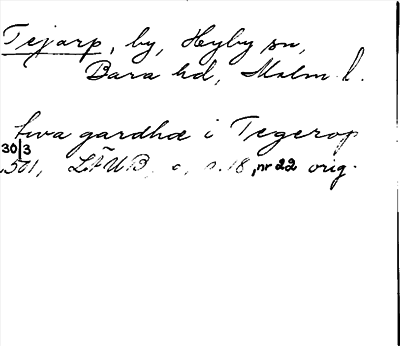 Tejarp, by, Hyby sn,
Bara hd, Malm. l.
twa gardhæ i Tegerop
30/3
1501, LÄUB, s. 18, nr 22 orig.